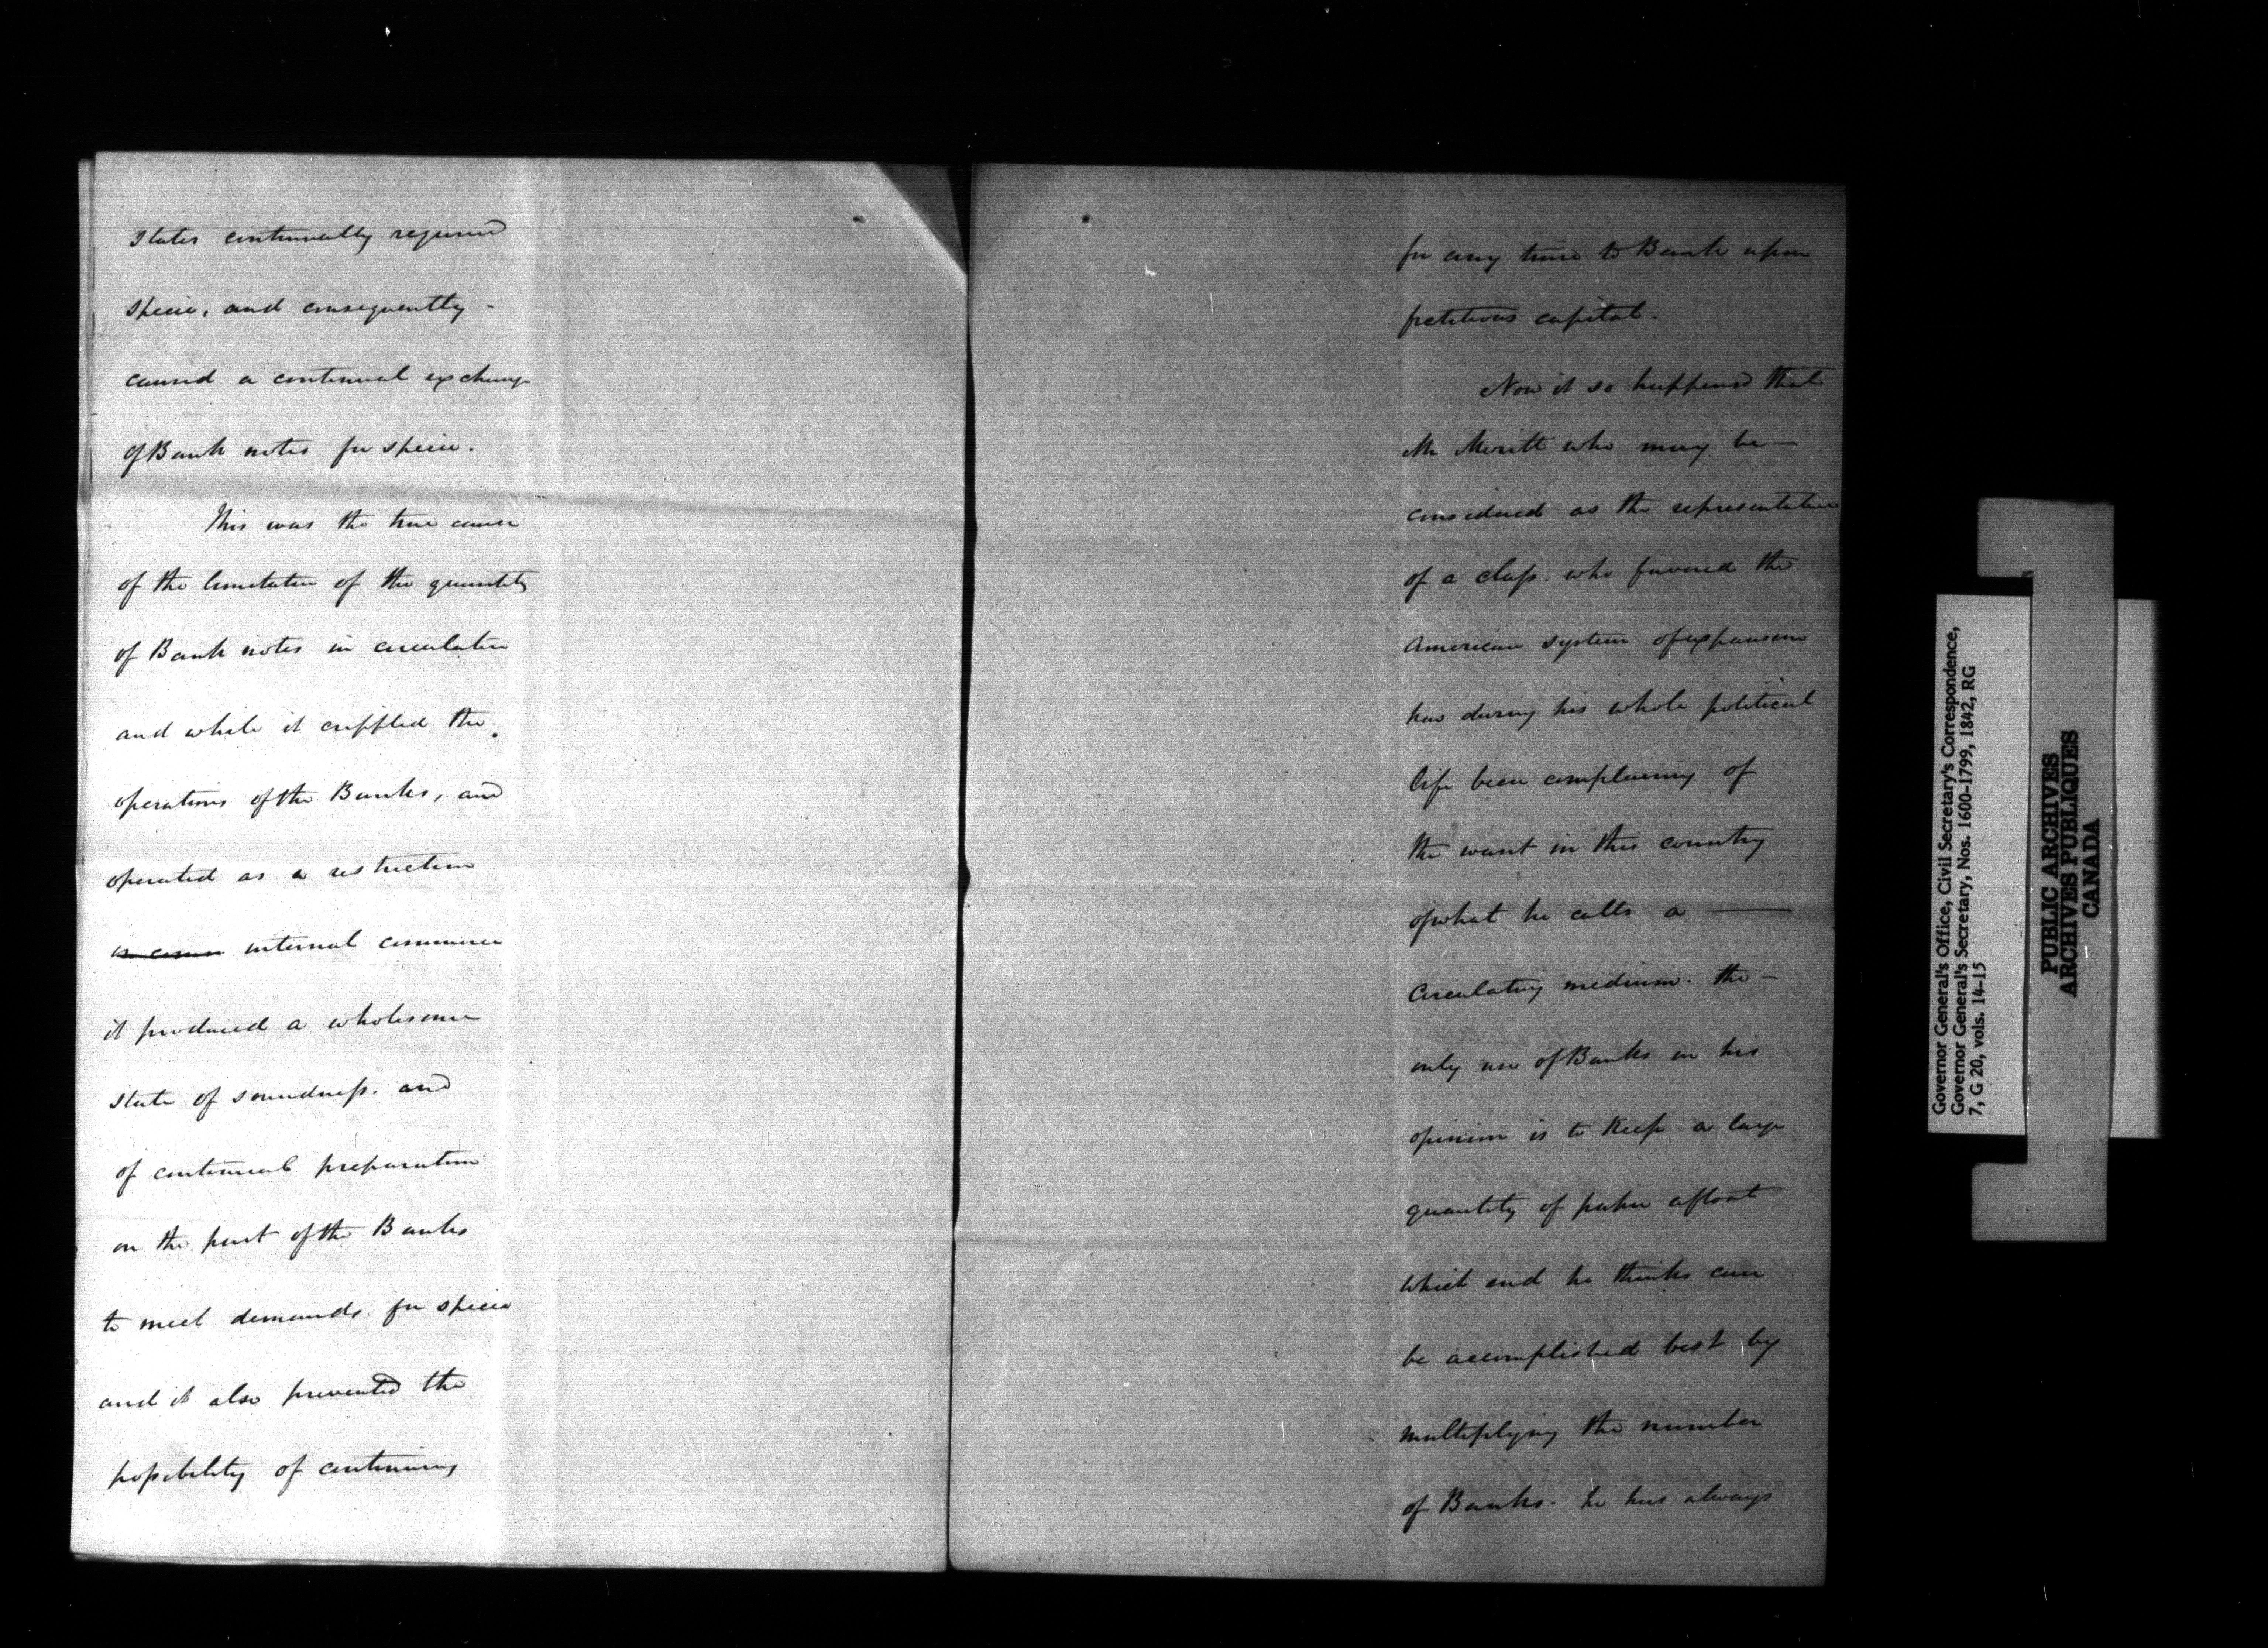 States continually required
specie, and consequently -
caused a continual exchange
of Bank notes for specie.
This was the true cause
of the limitation of the quantity
of Bank notes in circulation
and while it crippled the
operations of the Banks, and
operated as a restriction
internal commerce
it produced a wholesome
state of soundness. and
of continual preparation
on the part of the Banks
to meet demands for specie
and it also prevented the
possibility of continuing
for any time to Bank upon
fictitious capital.
Now it so happened that
Mr Meritt who may be —
considered as the representative
of a class. who favored the
American system of expansion
has during his whole political
life been complaining of
the want in this country
of what he calls a —
Circulating medium. The —
only use of Banks in his
opinion is to Keep a large
quantity of paper afloat
which end he thinks can
be accomplished best by
multiplying the number
of Banks. he has always
Governor General's Office, Civil Secretary's Correspondence,
Governor General's Secretary, Nos. 1600-1799, 1842, RG
7, G 20, vols. 14-15
PUBLIC ARCHIVES
ARCHIVES PUBLIQUES
CANADA